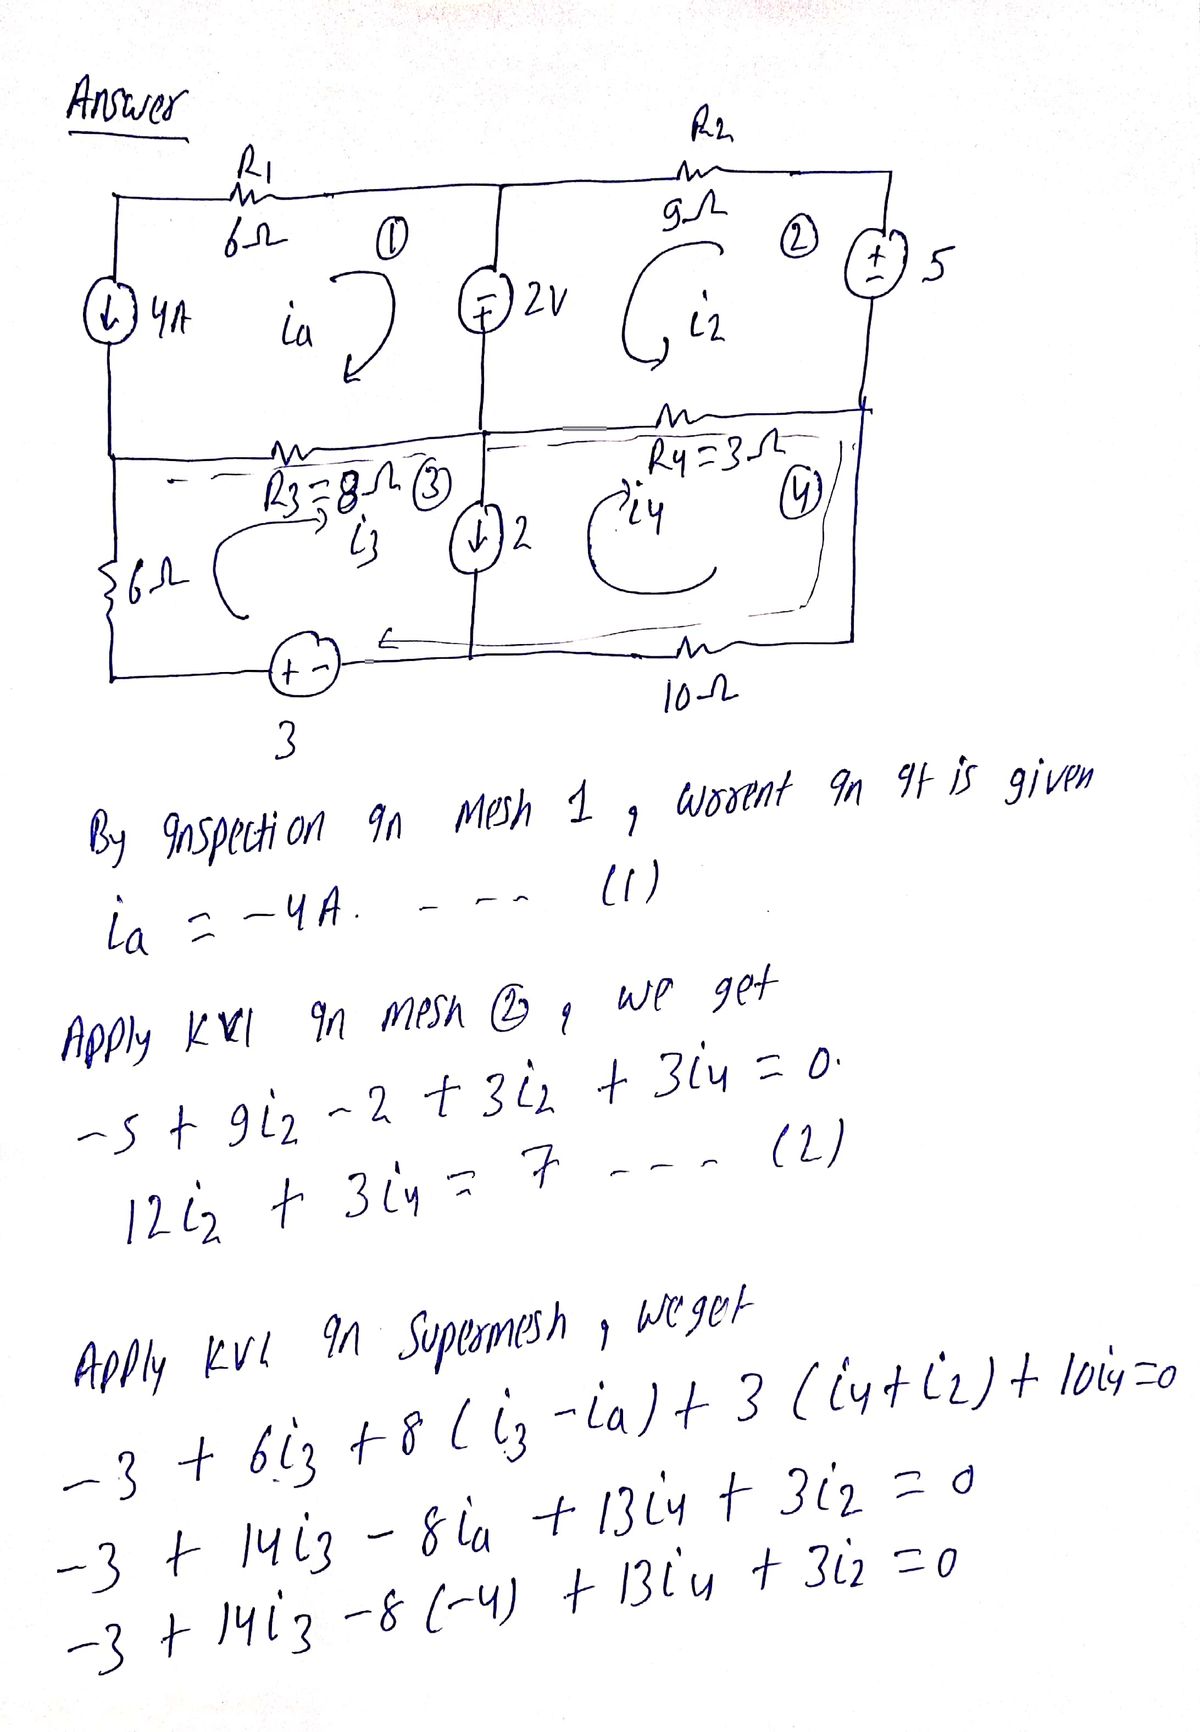 Answer
R1
6Ω
R2
9Ω
①
②
4A
ia
2V
i2
+
-
5
R3=8Ω
③
R4=3Ω
④
i3
i4
2
6Ω
+ -
3
10Ω
By inspection in Mesh 1, current in it is given
ia = -4A. - - - (1)
Apply KVl in mesh ②, we get
-5 + 9i2 - 2 + 3i2 + 3i4 = 0.
12i2 + 3i4 = 7 - - - (2)
Apply KVL in Supermesh, we get
-3 + 6i3 + 8(i3 - ia) + 3(i4 + i2) + 10i4 = 0
-3 + 14i3 - 8ia + 13i4 + 3i2 = 0
-3 + 14i3 - 8(-4) + 13i4 + 3i2 = 0